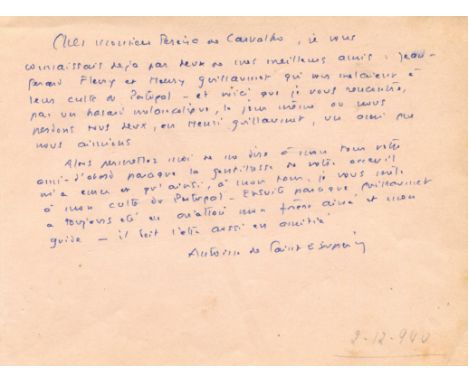 Cher Monsieur Pereira de Carvalho, je vous
connaissais deja par deux de mes meilleurs amis : Jean
Gerard Fleury et Henry Guillaumet qui vous mêlaient à
leur culte du Portugal - et voici que je vous rencontre,
par un hasard mélancolique, le jour même où nous
perdons tous deux, en Henri Guillaumet, un ami que
nous aimions
Alors permettez moi de me dire à mon tour votre
ami - d'abord parce que la gentillesse de votre accueil
m'a ému et qu'ainsi, à mon tour, je vous mêle
à mon culte du Portugal - Ensuite parce que Guillaumet
a toujours été en aviation mon frère ainé et mon
guide - il doit l'être aussi en amitié
Antoine de Saint Exupéry
2-12-940